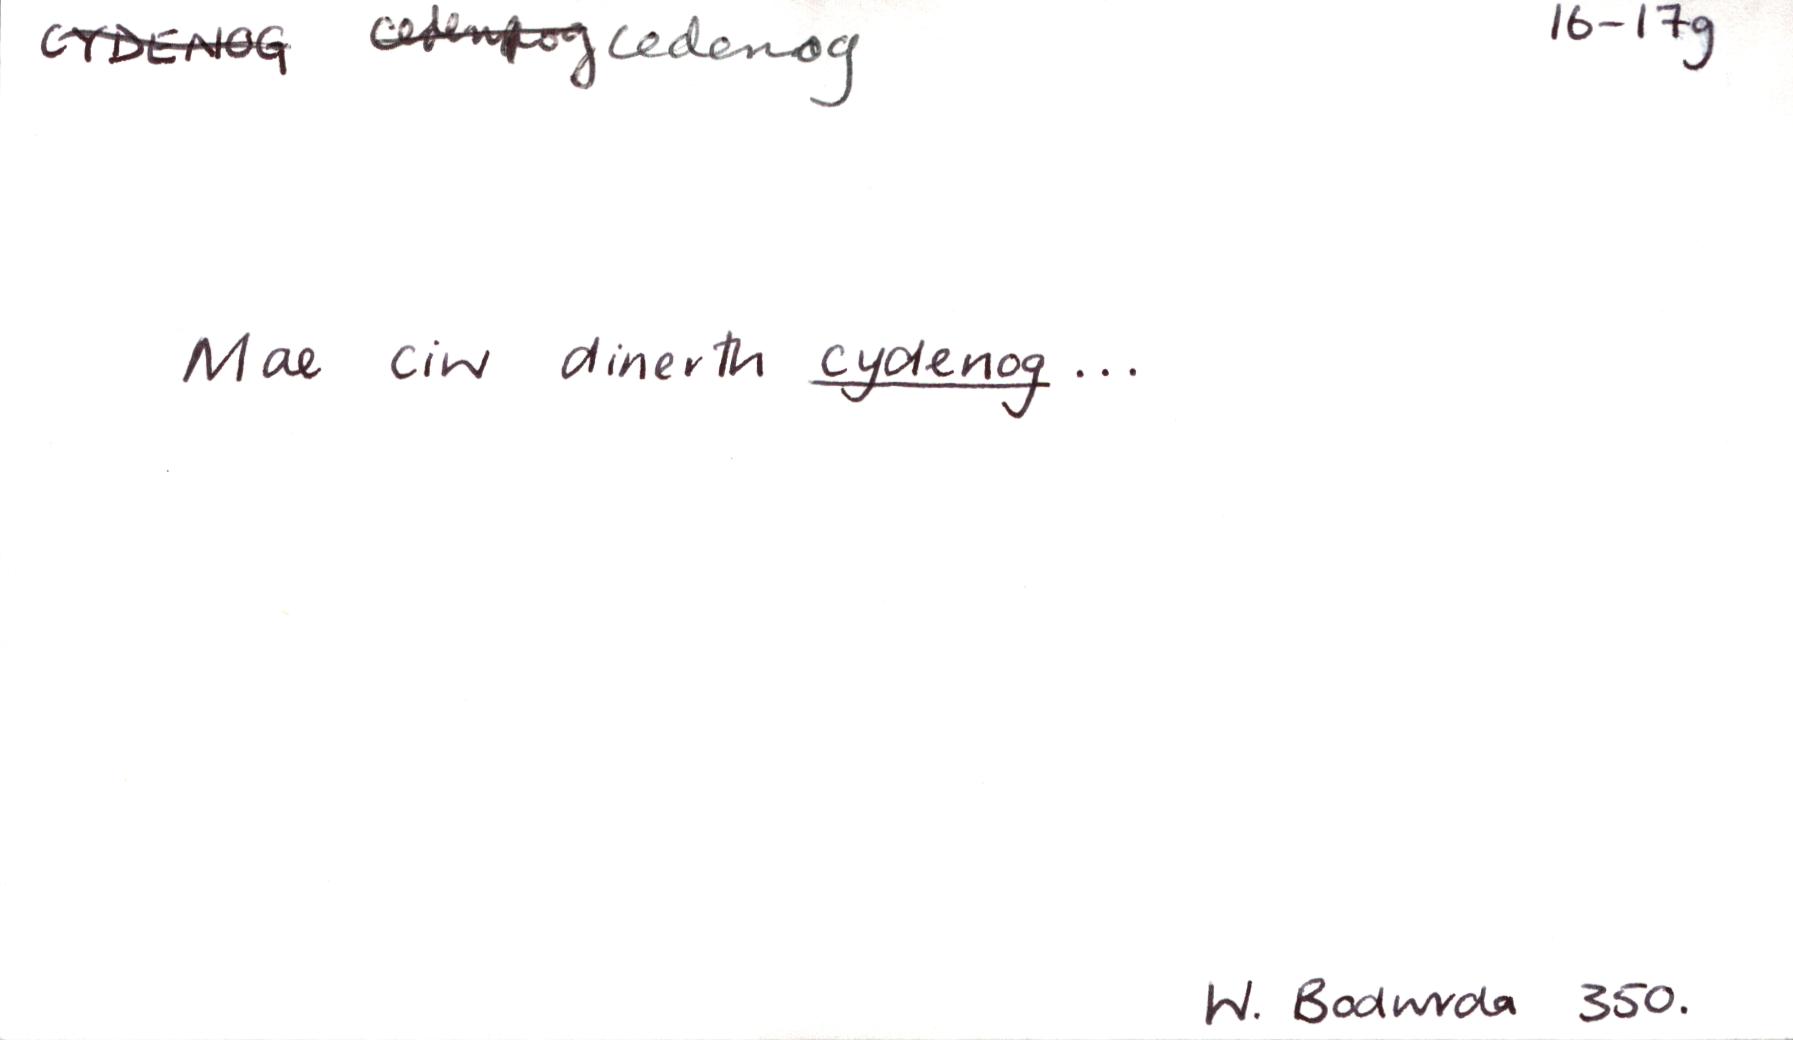 CYDENOG cedenog 16-17g
Mae ciw dinerth cydenog...
W. Bodwrda 350.